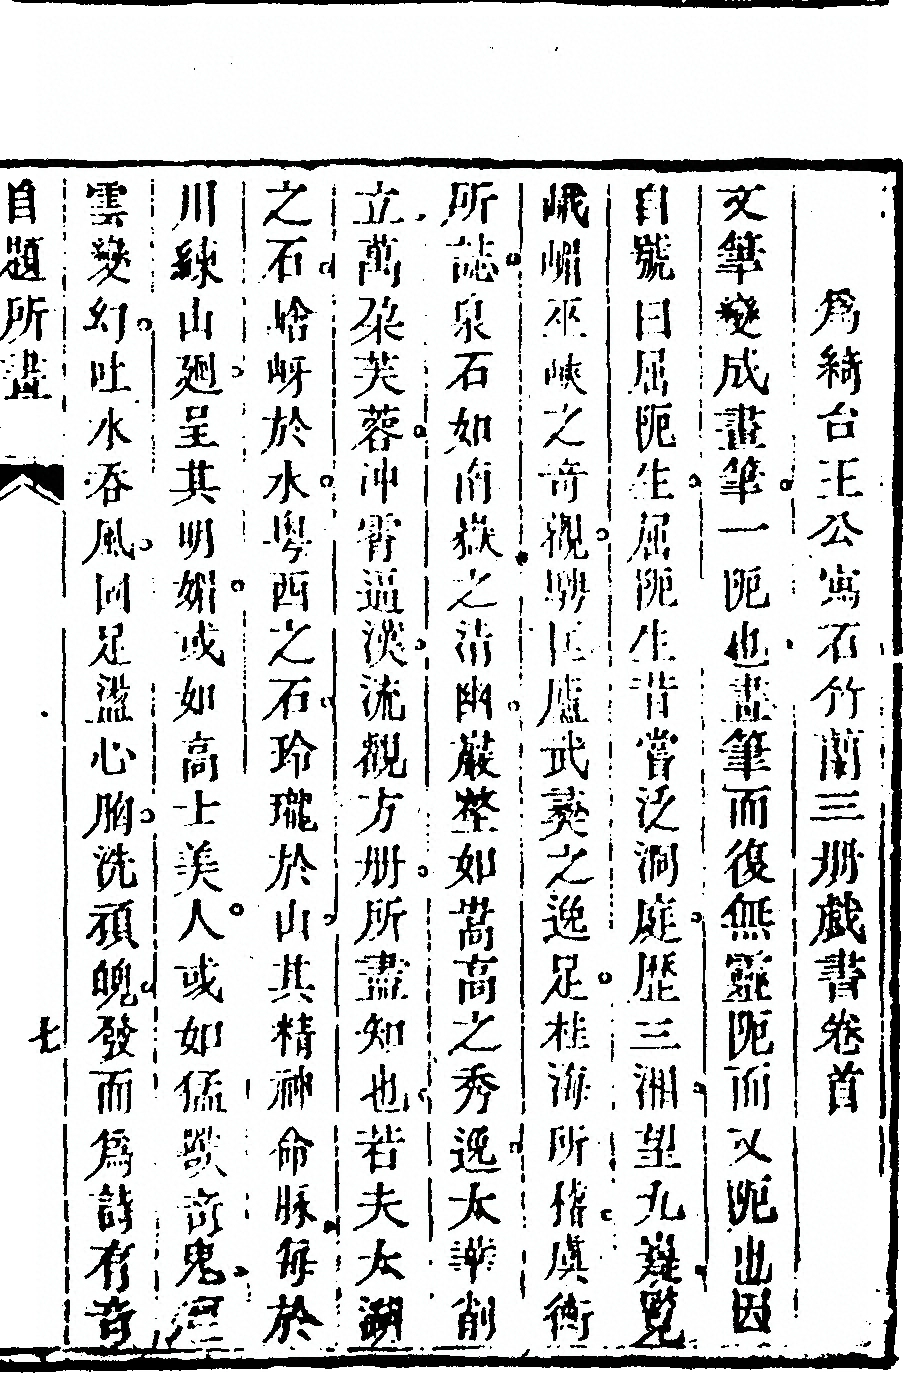 爲綺台王公寓石竹蘭三册戲書卷首
文筆變成畫筆一阨也畫筆而復無靈阨而又阨也因
自號曰屈阨生屈阨生昔嘗泛洞庭歷三湘望九嶷覽
峨嵋巫峽之奇觀騁匡廬武夷之逸足桂海所稽虞衡
所誌泉石如南嶽之清幽巖壑如嵩高之秀逸太華削
立萬朶芙蓉冲霄逼漢流觀方册所盡知也若夫太湖
之石谽岈於水粤西之石玲瓏於山其精神命脉每於
川練山廻呈其明媚或如高士美人或如猛獸奇鬼
雲變幻吐水吞風固足盪心胸洗頑魄發而爲詩有奇
自題所畫
七